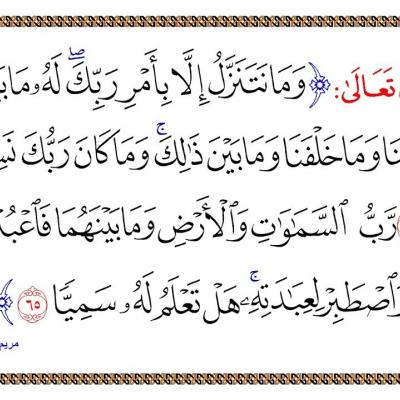 تَعَالَىٰ: ﴿وَمَا نَتَنَزَّلُ إِلَّا بِأَمْرِ رَبِّكَ ۖ لَهُۥ مَا
وَمَا خَلْفَنَا وَمَا بَيْنَ ذَٰلِكَ ۚ وَمَا كَانَ رَبُّكَ
رَّبُّ السَّمَٰوَٰتِ وَٱلْأَرْضِ وَمَا بَيْنَهُمَا
وَٱصْطَبِرْ لِعِبَٰدَتِهِۦ ۚ هَلْ تَعْلَمُ لَهُۥ سَمِيًّا ٦٥﴾
مريم